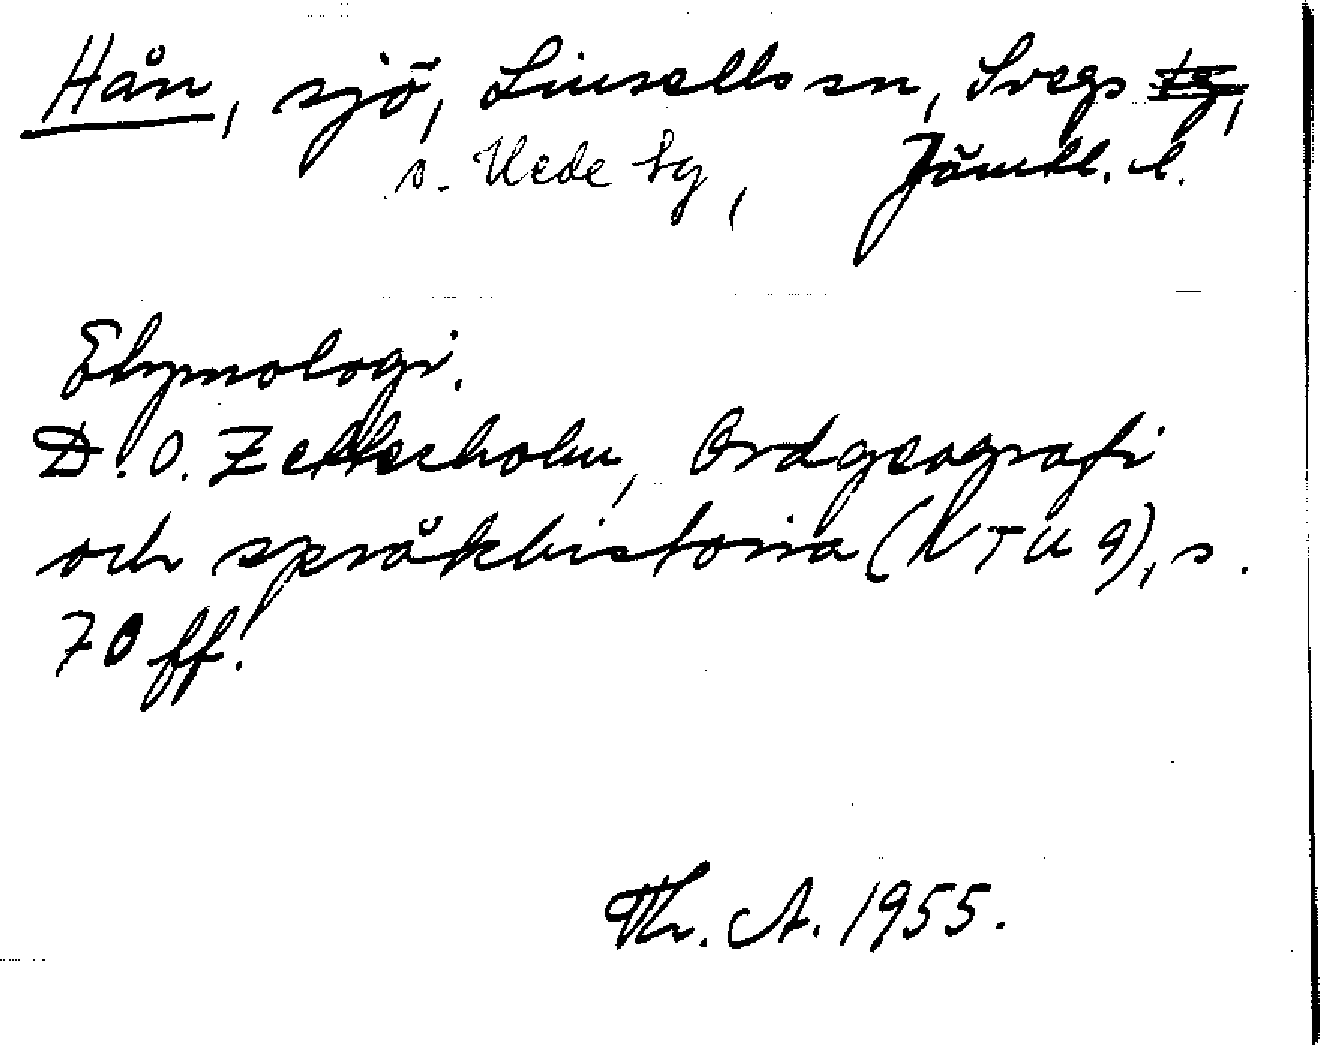 Hån, sjö, Linsells sn, Svegs tg,
s. Hede tg, Jämtl. l.
Etymologi.
D. O. Zetterholm, Ordgeografi
och språkhistoria (NTU 9), s.
70 ff.
Th. A. 1955.